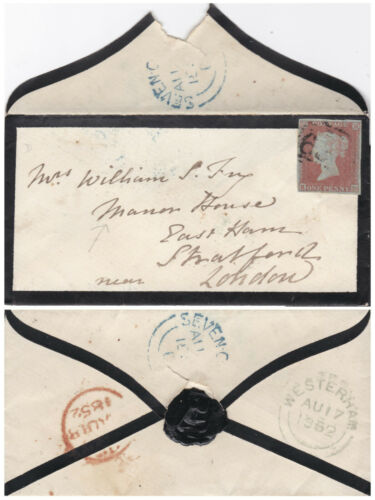 SEVENO
AU
Mrs William S. Fry
Manor House
East Ham
near Stratford
London
POSTAGE
ONE PENNY
SEVENO
AU
WESTERHAM
AU 17
1852
1852